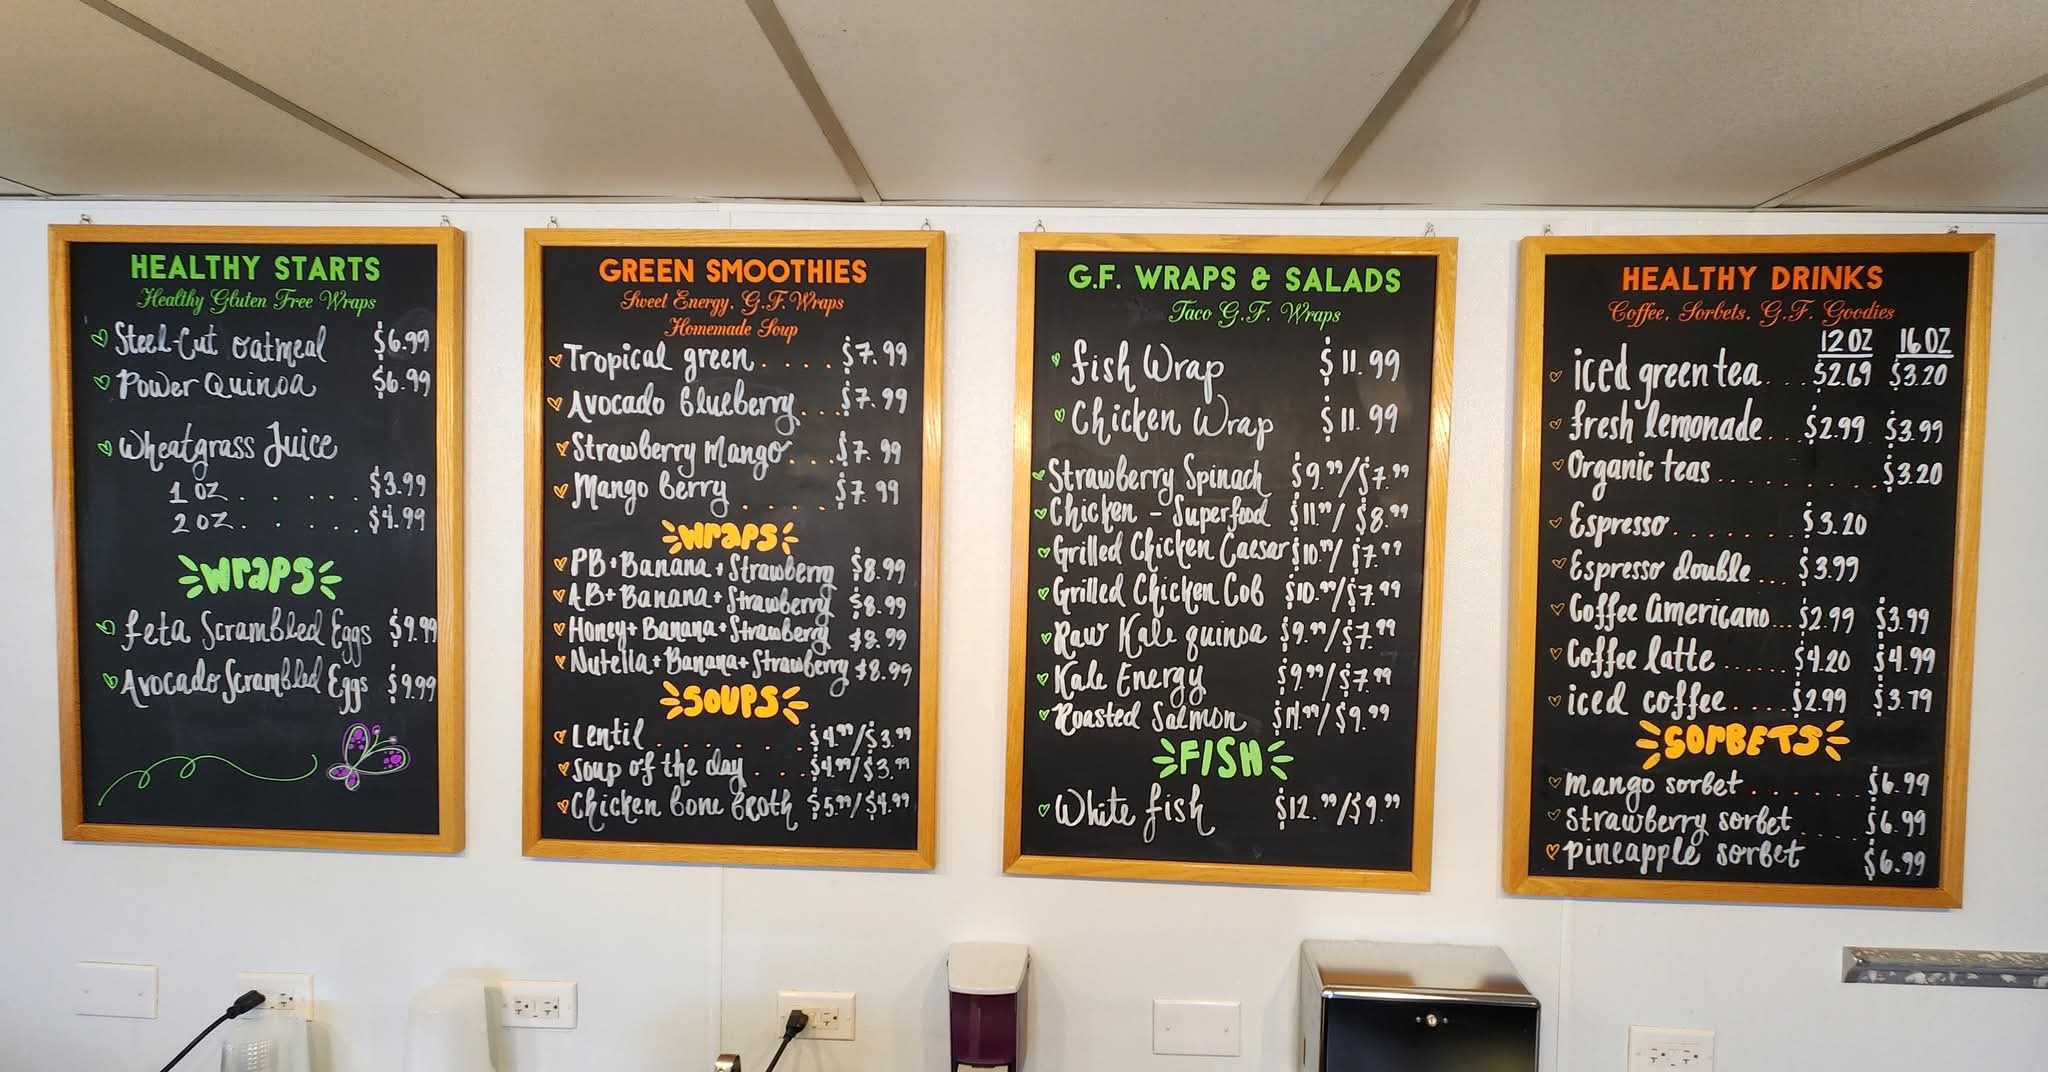 HEALTHY STARTS
Healthy Gluten Free Wraps
Steel-Cut oatmeal $6.99
Power Quinoa $6.99
Wheatgrass Juice
1 OZ. . . . . . $3.99
2 OZ. . . . . . $4.99
Wraps
feta Scrambled Eggs $9.99
Avocado Scrambled Eggs $9.99
GREEN SMOOTHIES
Sweet Energy, G.F. Wraps
Homemade Soup
Tropical green . . . . $7.99
Avocado Blueberry . . . $7.99
Strawberry Mango . . . $7.99
Mango Berry . . . . $7.99
Wraps
PB+Banana+Strawberry $8.99
AB+Banana+Strawberry $8.99
Honey+Banana+Strawberry $8.99
Nutella+Banana+Strawberry $8.99
SOUPS
Lentil . . . . . . . $4.99/$3.99
Soup of the day . . . $4.99/$3.99
Chicken bone broth $5.99/$4.99
G.F. WRAPS & SALADS
Taco G.F. Wraps
fish Wrap $11.99
Chicken Wrap $11.99
Strawberry Spinach $9.99/$7.99
Chicken - Superfood $11.99/$8.99
Grilled Chicken Caesar $10.99/$7.99
Grilled Chicken Cob $10.99/$7.99
Raw Kale quinoa $9.99/$7.99
Kale Energy $9.99/$7.99
Roasted Salmon /$9.99
FISH
White fish $12.99/$9.99
HEALTHY DRINKS
Coffee, Sorbets, G.F. Goodies
12 OZ 16 OZ
iced green tea . . . $2.69 $3.20
fresh lemonade . . . $2.99 $3.99
Organic teas . . . . . . . . . . $3.20
Espresso . . . . . . . $3.20
Espresso double . . . $3.99
Coffee Americano . . . $2.99 $3.99
Coffee latte . . . . . $4.20 $4.99
iced coffee . . . . . $2.99 $3.79
SORBETS
mango sorbet . . . . . . . $6.99
strawberry sorbet . . . . $6.99
pineapple sorbet $6.99